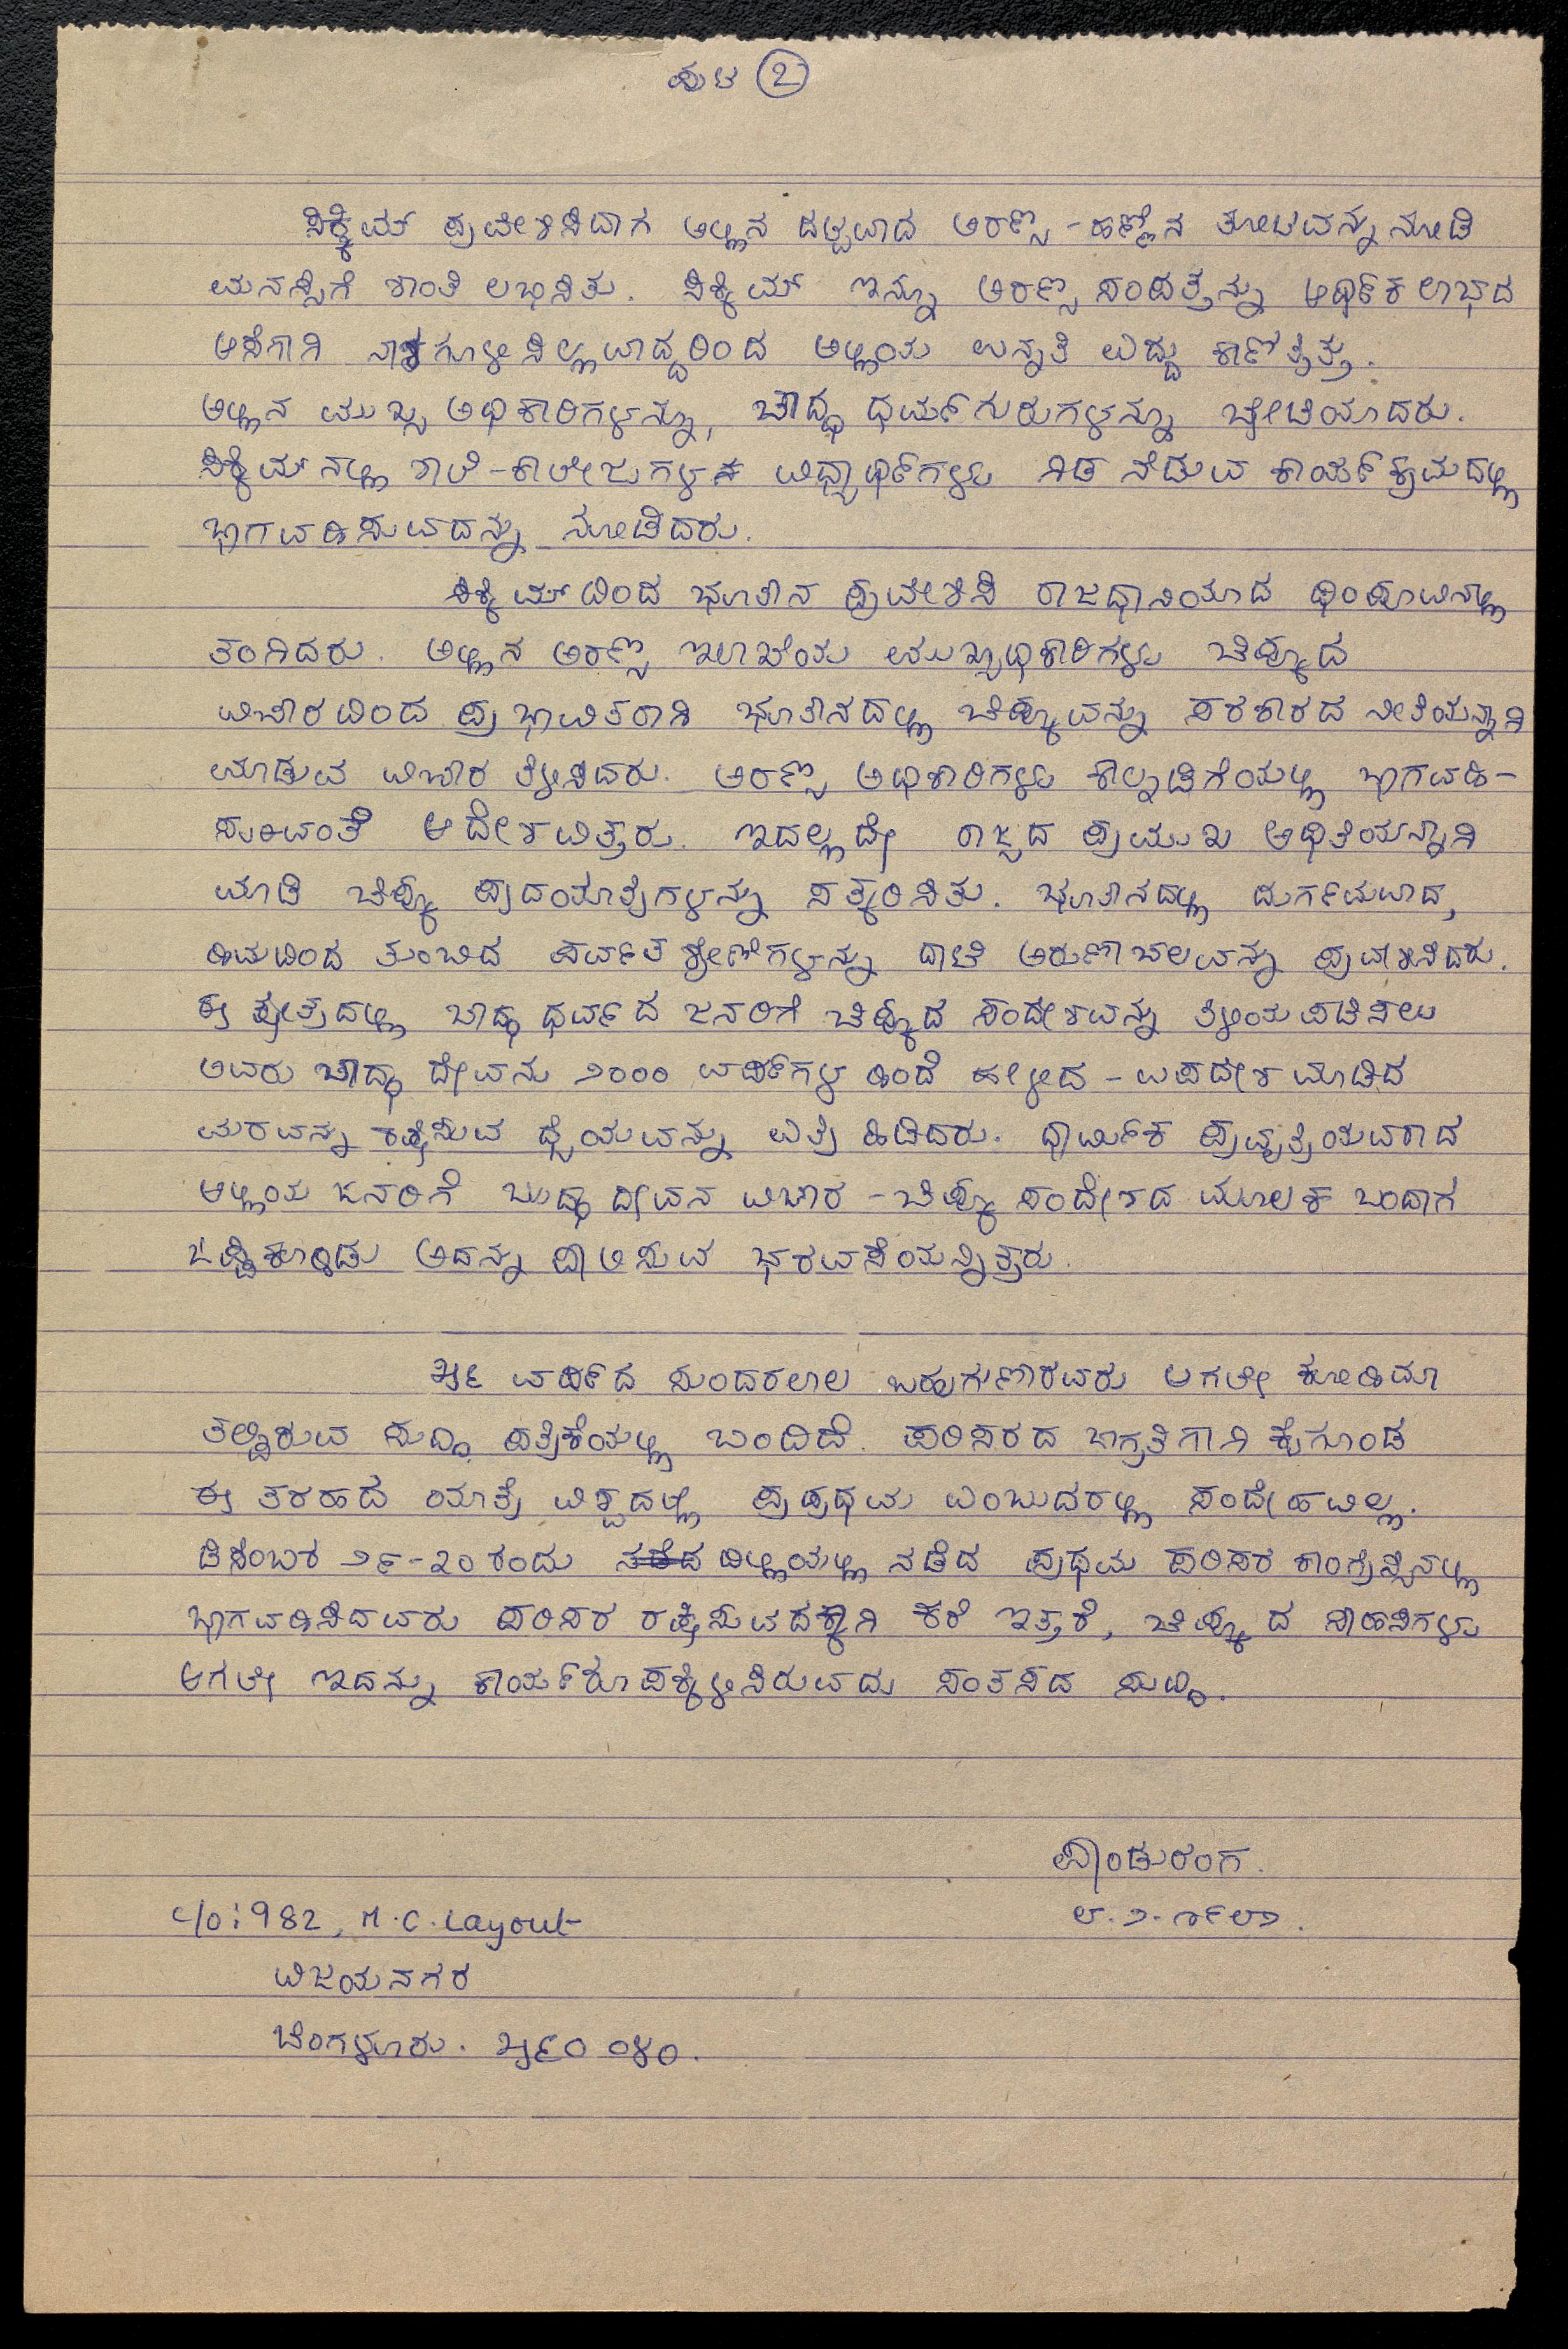 ಪುಟ 2
ಸಿಕ್ಕಿಮ್ ಪ್ರವೇಶಿಸಿದಾಗ ಅಲ್ಲಿನ ದಟ್ಟವಾದ ಅರಣ್ಯ-ಹಣ್ಣಿನ ತೋಟವನ್ನು ನೋಡಿ
ಮನಸ್ಸಿಗೆ ಶಾಂತಿ ಲಭಿಸಿತು. ಸಿಕ್ಕಿಮ್ ಇನ್ನೂ ಅರಣ್ಯ ಸಂಪತ್ತನ್ನು ಆರ್ಥಿಕ ಲಾಭದ
ಆಸೆಗಾಗಿ ನಾಶಗೊಳಿಸಿಲ್ಲವಾದ್ದರಿಂದ ಅಲ್ಲಿಯ ಉನ್ನತಿ ಎದ್ದು ಕಾಣಿತ್ತಿತ್ತು.
ಅಲ್ಲಿನ ಮುಖ್ಯ ಅಧಿಕಾರಿಗಳನ್ನೂ, ಬೌದ್ಧ ಧರ್ಮಗುರುಗಳನ್ನೂ ಭೇಟಿಯಾದರು.
ಸಿಕ್ಕಿಮ್ ನಲ್ಲಿ ಶಾಲೆ-ಕಾಲೇಜುಗಳ ವಿದ್ಯಾರ್ಥಿಗಳು ಗಿಡ ನೆಡುವ ಕಾರ್ಯಕ್ರಮದಲ್ಲಿ
ಭಾಗವಹಿಸುವದನ್ನು ನೋಡಿದರು.
ಸಿಕ್ಕಿಮ್ ದಿಂದ ಭೂತಾನ ಪ್ರವೇಶಿಸಿ ರಾಜಧಾನಿಯಾದ ಥಿಂಪೂವಿನಲ್ಲಿ
ತಂಗಿದರು. ಅಲ್ಲಿನ ಅರಣ್ಯ ಇಲಾಖೆಯ ಮುಖ್ಯಾಧಿಕಾರಿಗಳು ಚಿಪ್ಕೊದ
ವಿಚಾರದಿಂದ ಪ್ರಭಾವಿತರಾಗಿ ಭೂತಾನದಲ್ಲಿ ಚಿಪ್ಕೊವನ್ನು ಸರಕಾರದ ನೀತಿಯನ್ನಾಗಿ
ಮಾಡುವ ವಿಚಾರ ತಿಳಿಸಿದರು. ಅರಣ್ಯ ಅಧಿಕಾರಿಗಳು ಕಾಲ್ನಡಿಗೆಯಲ್ಲಿ ಭಾಗವಹಿ-
ಸುವಂತೆ ಆದೇಶವಿತ್ತರು. ಇದಲ್ಲದೇ ರಾಜ್ಯದ ಪ್ರಮುಖ ಅಥಿತಿಯನ್ನಾಗಿ
ಮಾಡಿ ಚಿಪ್ಕೊ ಪಾದಯಾತ್ರಿಗಳನ್ನು ಸತ್ಕರಿಸಿತು. ಭೂತಾನದಲ್ಲಿ ದುರ್ಗಮವಾದ,
ಹಿಮದಿಂದ ತುಂಬಿದ ಪರ್ವತ ಶ್ರೇಣಿಗಳನ್ನು ದಾಟಿ ಅರುಣಾಚಲವನ್ನು ಪ್ರವೇಶಿಸಿದರು.
ಈ ಕ್ಷೇತ್ರದಲ್ಲಿ ಬೌದ್ಧ ಧರ್ಮದ ಜನರಿಗೆ ಚಿಪ್ಕೊದ ಸಂದೇಶವನ್ನು ತಿಳಿಯಪಡಿಸಲು
ಅವರು ಬೌದ್ಧ ದೇವನು ೨೦೦೦ ವರ್ಷಗಳ ಹಿಂದೆ ಹೇಳಿದ - ಉಪದೇಶ ಮಾಡಿದ
ಮರವನ್ನು ರಕ್ಷಿಸುವ ಧ್ಯೇಯವನ್ನು ಎತ್ತಿ ಹಿಡಿದರು. ಧಾರ್ಮಿಕ ಪ್ರವೃತ್ತಿಯವರಾದ
ಅಲ್ಲಿಯ ಜನರಿಗೆ ಬುದ್ಧ ದೇವನ ವಿಚಾರ - ಚಿಪ್ಕೊ ಸಂದೇಶದ ಮೂಲಕ ಬಂದಾಗ
ಒಪ್ಪಿಕೊಂಡು ಅದನ್ನು ಪಾಲಿಸುವ ಭರವಸೆಯನ್ನಿತ್ತರು.
೫೬ ವರ್ಷದ ಸುಂದರಲಾಲ ಬಹುಗುಣಾರವರು ಆಗಲೇ ಕೋಹಿಮಾ
ತಲ್ಪಿರುವ ಸುದ್ದಿ ಪತ್ರಿಕೆಯಲ್ಲಿ ಬಂದಿದೆ. ಪರಿಸರದ ಜಾಗ್ರತಿಗಾಗಿ ಕೈಗೊಂಡ
ಈ ತರಹದ ಯಾತ್ರೆ ವಿಶ್ವದಲ್ಲಿ ಪ್ರಪ್ರಥಮ ಎಂಬುದರಲ್ಲಿ ಸಂದೇಹವಿಲ್ಲ.
ಡಿಸೆಂಬರ ೨೯-೩೦ ರಂದು ದಿಲ್ಲಿಯಲ್ಲಿ ನಡೆದ ಪ್ರಥಮ ಪರಿಸರ ಕಾಂಗ್ರೆಸ್ಸಿನಲ್ಲಿ
ಭಾಗವಹಿಸಿದವರು ಪರಿಸರ ರಕ್ಷಿಸುವದಕ್ಕಾಗಿ ಕರೆ ಇತ್ತರೆ, ಚಿಪ್ಕೊದ ಸಾಹಸಿಗಳು
ಆಗಲೇ ಇದನ್ನು ಕಾರ್ಯರೂಪಕ್ಕಿಳಿಸಿರುವದು ಸಂತಸದ ಸುದ್ದಿ.
ಪಾಂಡುರಂಗ.
೮.೨.೧೯೮೨.
c/o: 982, M.C. Layout
ವಿಜಯನಗರ
ಬೆಂಗಳೂರು. ೫೬೦ ೦೪೦.